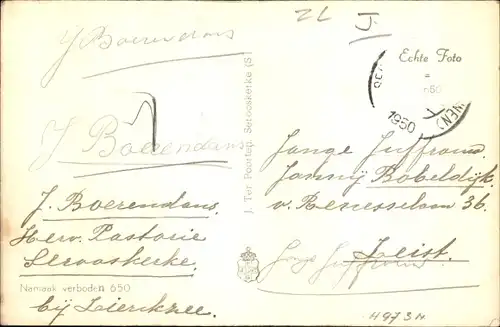 ZL
J
J Boerendans
J Boerendans
J. Boerendans.
Herv. Pastorie
Serooskerke.
Namaak verboden 650
bij Zierikzee.
J. Ter Poorten, Serooskerke (S
Echte Foto
1950
Jonge Juffrouw
Janny Bobeldijk.
v. Renesselaan 36.
Zeist.
Jonge Juffrouw
H973N